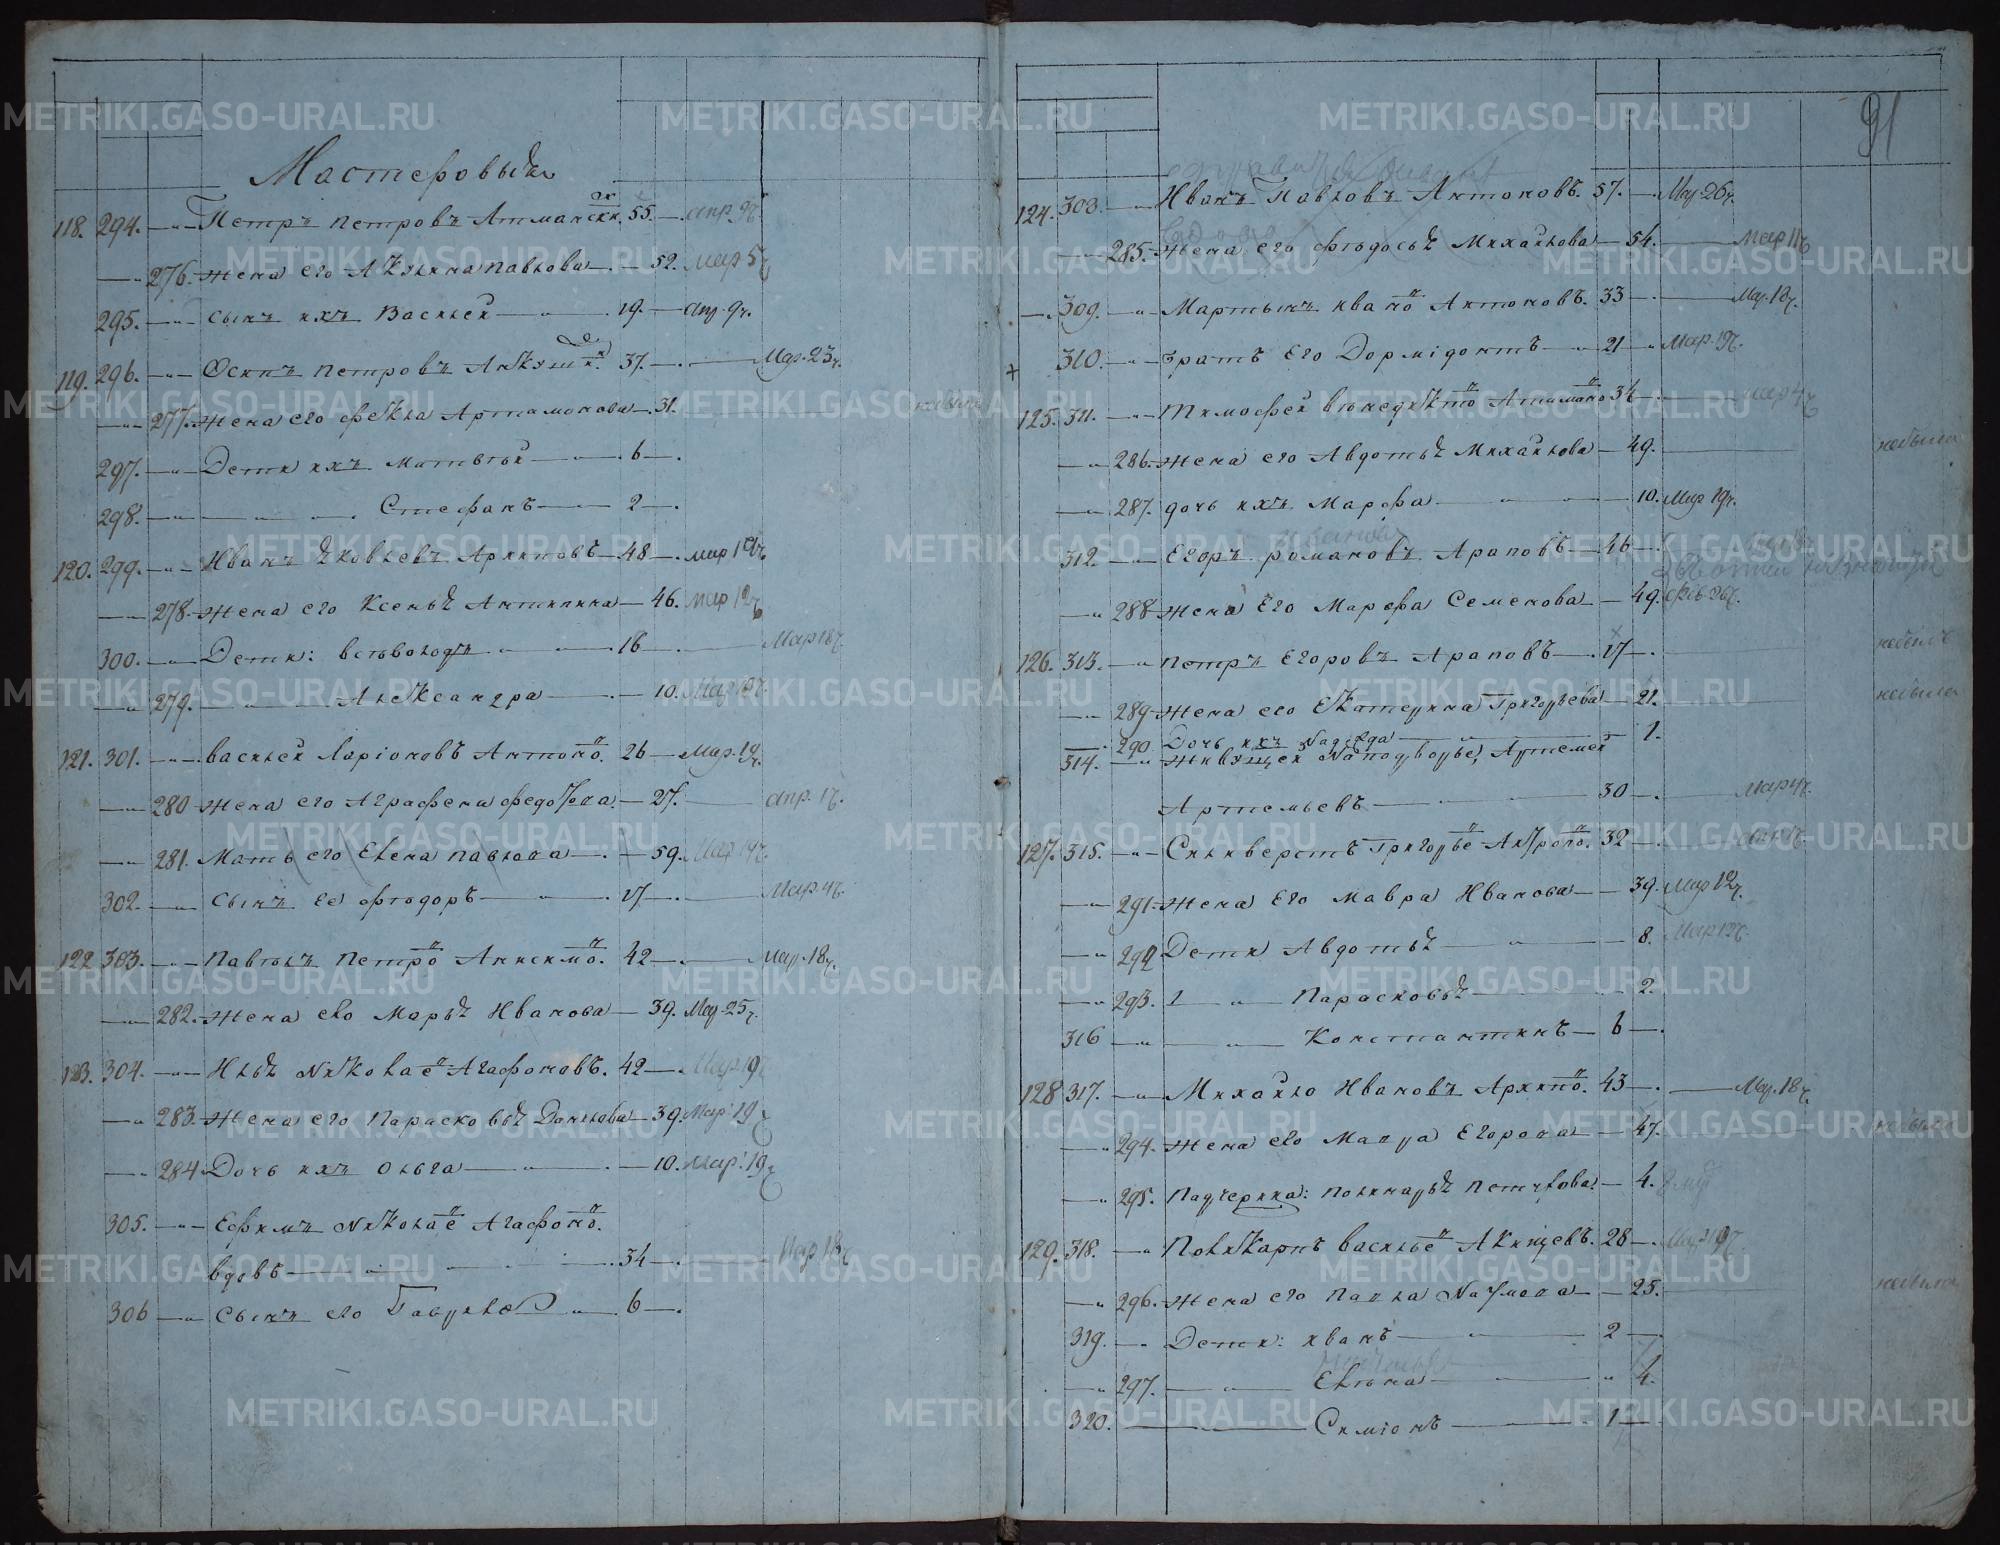 Мастеровыя
118. 294. Петръ Петровъ 55. Апр. 9ч.
276. жена его Акулина Павлова 52. Мар. 5ч
295. сынъ ихъ Василей 19. Апр. 9ч.
119. 296. Осипъ Петровъ 37. Мар. 23ч.
277. жена его Фекла Артамонова 31. небыла
297. Дети ихъ Матвѣй 6
298. Стефанъ 2
120. 299. Иванъ Яковлевъ Архиповъ 48 Мар 19ч
278. жена его Ксенья Антипина 46. Мар 12ч
300. Дети: Всѣволодъ 16 Мар 18ч.
279. Александра 10. Мар 19ч.
121. 301. Василей Ларіоновъ Антоно. 26 Мар. 19ч.
280 жена его Аграфена Федотова 27. Апр. 1ч.
281. Мать его Елена Павлова 59. Мар 19ч.
302. Сынъ ее Фѣодоръ 17 Мар. 4ч.
122 303. Павѣлъ Петро Анисимо. 42 Мар. 18ч.
282. жена его Марья Иванова 39. Мар 25ч.
123. 304. Илья Николае Агафоновъ. 42 Мар 19ч
283. жена его Парасковья Данилова 39. Мар. 19ч
284 Дочь ихъ Ольга 10. Мар. 19ч
305. Ефимъ Николае Агафоно.
вдовъ 34 Мар 18ч
306 Сынъ его Гаврило 6
91
124. 308. Иванъ Павловъ Антоновъ. 57. Мар 26ч.
285. жена его Фѣодосья Михайлова 54. Мар 11ч
309. Мартынъ Ивано Антоновъ. 33 Мар. 18ч.
310. братъ Его Дормідонтъ 21 Мар. 19ч.
125. 311. Тимофей 34 Мар 4ч
286. жена его Авдотья Михайлова 49. небыла
287. дочь ихъ Марфа 10. Мар 19ч.
312. Егоръ Романовъ Араповъ 46
288 жена Его Марфа Семенова 49. Фев 26ч.
126. 313. Петръ Егоровъ Араповъ 17 небылъ
289 жена его Екатерина Григорьева 21. небыла
290 Дочь ихъ Надежда 1.
314. Живущей на подворье, Артемей
Артемьевъ 30 Мар 4ч.
127. 315. Силиверстъ Григорье 32
291. жена Его Мавра Иванова 39. Мар 12ч.
292 Дети Авдотья 8. Мар 12ч.
293. Парасковья 2.
316 Константинъ 6
128 317. Михайло Ивановъ Архипо. 43 Мар. 18ч.
294. жена его Марья Егорова 47. небыла
295. Падчерица: 4.
129. 318. Поликарпъ Василье 28 Мар 19ч.
296. жена его Павла Наумова 25. небыла
319. Дети: Иванъ 2
297. Елѣна 4.
320. Симіонъ 1
METRIKI.GASO-URAL.RU